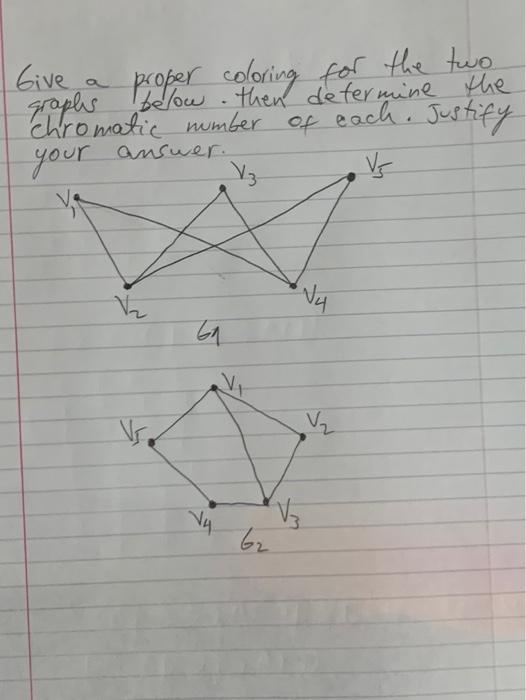 Give a proper coloring for the two
graphs below. then determine the
chromatic number of each. Justify
your answer.
V3
V5
V1
V2
V4
G1
V1
V2
V5
V4
V3
G2